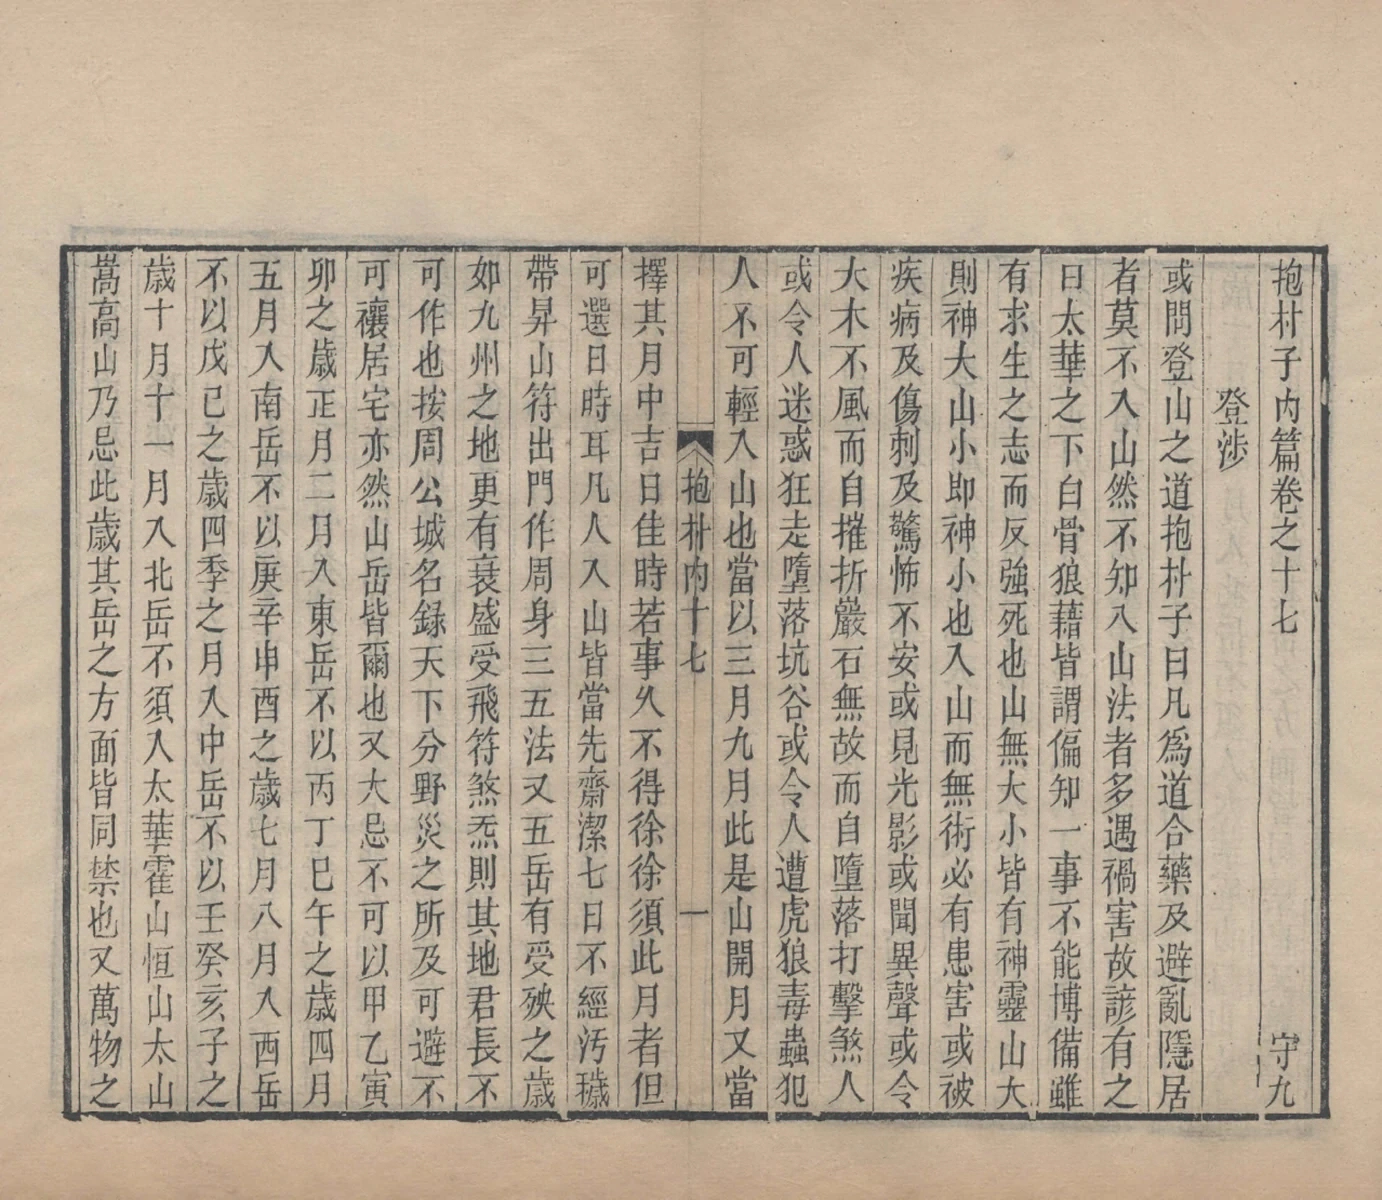 抱朴子內篇卷之十七 守九
登涉
或問登山之道抱朴子曰凡爲道合藥及避亂隱居
者莫不入山然不知入山法者多遇禍害故諺有之
曰太華之下白骨狼藉皆謂偏知一事不能博備雖
有求生之志而反強死也山無大小皆有神靈山大
則神大山小即神小也入山而無術必有患害或被
疾病及傷刺及驚怖不安或見光影或聞異聲或令
大木不風而自摧折巖石無故而自墮落打擊煞人
或令人迷惑狂走墮落坑谷或令人遭虎狼毒蟲犯
人不可輕入山也當以三月九月此是山開月又當
抱朴內十七 一
擇其月中吉日佳時若事久不得徐徐須此月者但
可選日時耳凡人入山皆當先齋潔七日不經汚穢
帶昇山符出門作周身三五法又五岳有受殃之歲
如九州之地更有衰盛受飛符煞炁則其地君長不
可作也按周公城名錄天下分野災之所及可避不
可禳居宅亦然山岳皆爾也又大忌不可以甲乙寅
卯之歲正月二月入東岳不以丙丁巳午之歲四月
五月入南岳不以庚辛申酉之歲七月八月入西岳
不以戊己之歲四季之月入中岳不以壬癸亥子之
歲十月十一月入北岳不須入太華霍山恒山太山
嵩高山乃忌此歲其岳之方面皆同禁也又萬物之